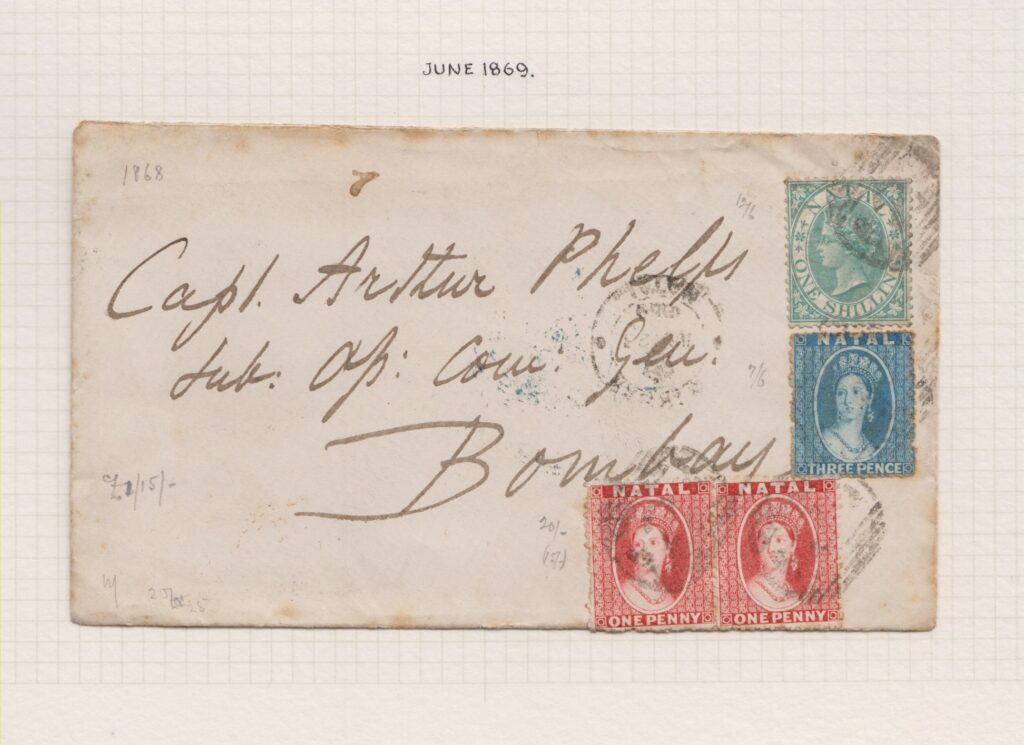 JUNE 1869.
1868
12/6
Capt. Arthur Phelps
Sub: Op: Com: Gen:
Bombay
NATAL
ONE SHILLING
7/6
NATAL
THREE PENCE
£1/15/-
20/-
NATAL NATAL
ONE PENNY ONE PENNY